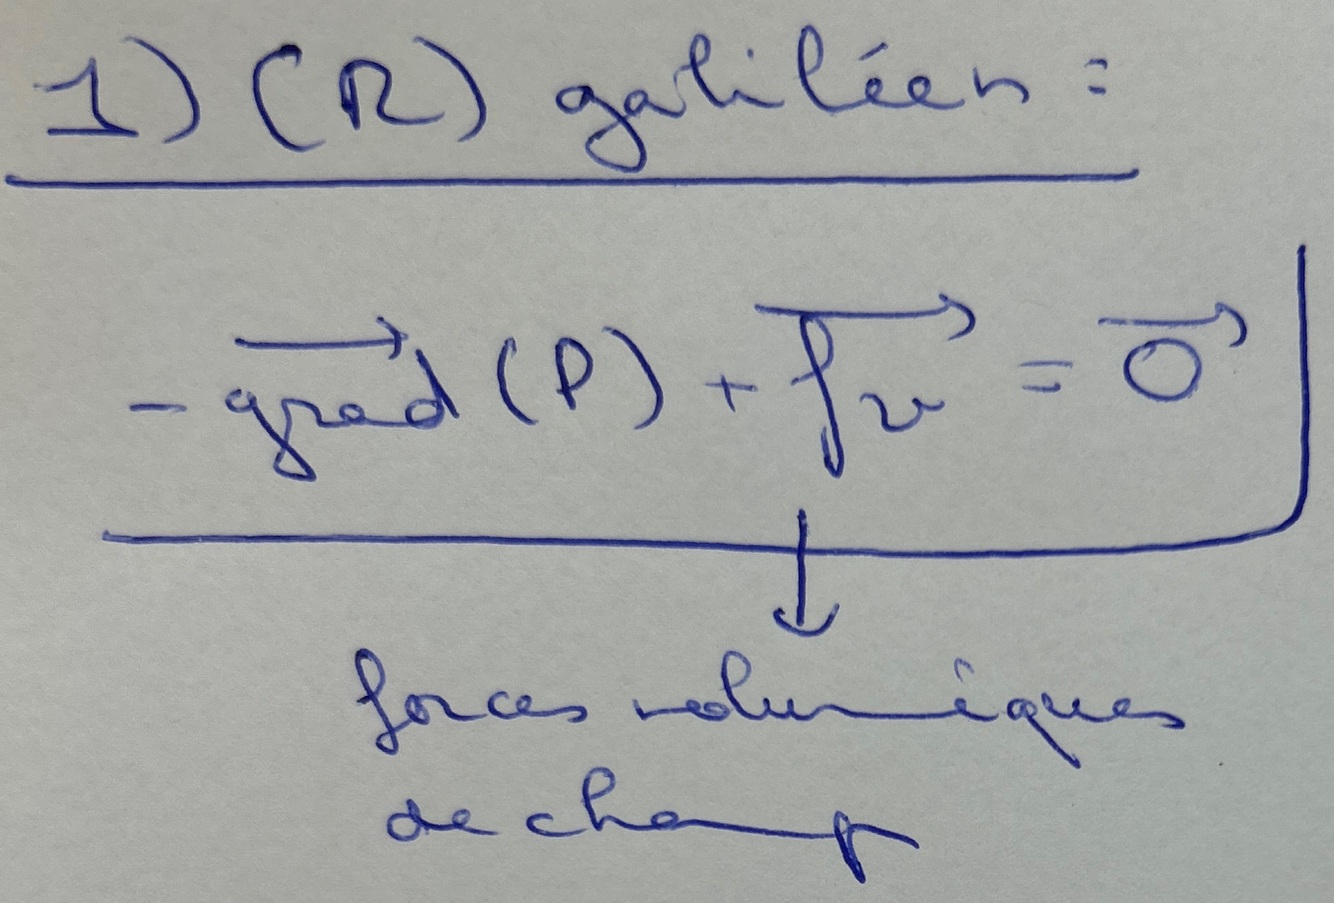 1) (R) galiléen :
- \overrightarrow{grad} (P) + \overrightarrow{f_v} = \overrightarrow{0}
forces volumiques
de champ